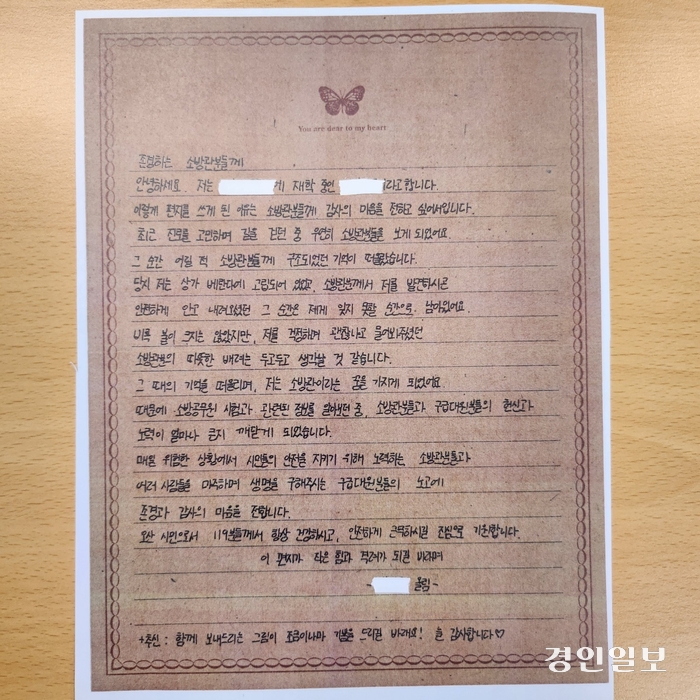 You are dear to my heart
존경하는 소방관분들께
안녕하세요. 저는 에 재학 중인 라고합니다.
이렇게 편지를 쓰게 된 이유는 소방관분들께 감사의 마음을 전하고 싶어서입니다.
최근 진로를 고민하며 길을 걷던 중 우연히 소방관분들을 보게 되었어요.
그 순간 어릴 적 소방관분들께 구조되었던 기억이 떠올랐습니다.
당시 저는 상가 베란다에 고립되어 있었고, 소방관분께서 저를 발견하시곤
안전하게 안고 내려와주셨던 그 순간은 제게 잊지 못할 순간으로 남아있어요.
비록 불이 크지는 않았지만, 저를 걱정하며 괜찮냐고 물어봐주셨던
소방관분의 따뜻한 배려는 두고두고 생각날 것 같습니다.
그 때의 기억을 떠올리며, 저는 소방관이라는 꿈을 가지게 되었어요.
때문에 소방공무원 시험과 관련된 정보를 알아보던 중, 소방관분들과 구급대원분들의 헌신과
노력이 얼마나 큰지 깨닫게 되었습니다.
매일 위험한 상황에서 시민들의 안전을 지키기 위해 노력하는 소방관분들과
여러 사람들을 마주하며 생명을 구해주시는 구급대원분들의 노고에
존경과 감사의 마음을 전합니다.
오산 시민으로서 119분들께서 항상 건강하시고, 안전하게 근무하시길 진심으로 기원합니다.
이 편지가 작은 힘과 격려가 되길 바라며
- 올림 -
+추신 : 함께 보내드리는 그림이 조금이나마 기쁨을 드리길 바래요! 늘 감사합니다♡
경인일보